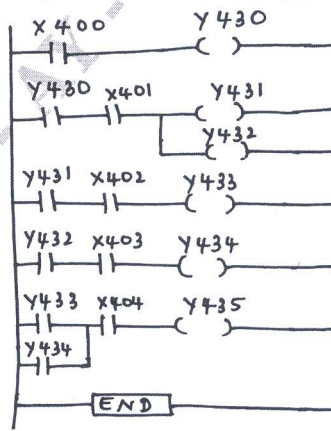 X400 Y430
Y430 X401 Y431
Y432
Y431 X402 Y433
Y432 X403 Y434
Y433 X404 Y435
Y434
END